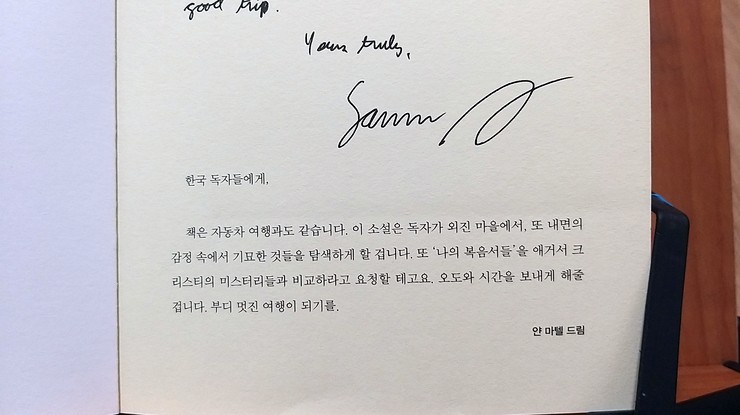 good trip.
Yours truly,
한국 독자들에게,
책은 자동차 여행과도 같습니다. 이 소설은 독자가 외진 마을에서, 또 내면의
감정 속에서 기묘한 것들을 탐색하게 할 겁니다. 또 ‘나의 복음서들’을 애거서 크
리스티의 미스터리들과 비교하라고 요청할 테고요. 오도와 시간을 보내게 해줄
겁니다. 부디 멋진 여행이 되기를.
얀 마텔 드림